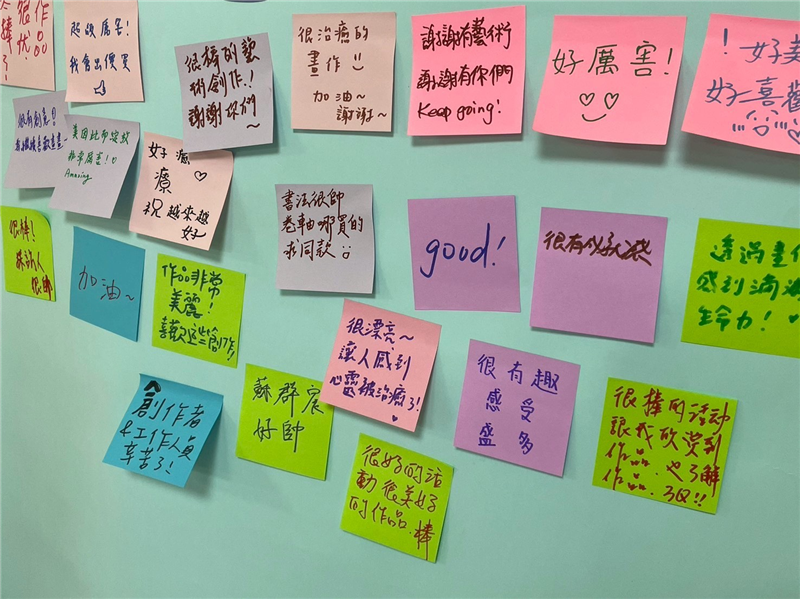 很作品
棒
了!
超級厲害!
我會出價買
很棒的藝
術創作!
謝謝你們
~
很治療的
畫作
加油~
謝謝~
謝謝有藝術
謝謝有你們
Keep going!
好厲害!
!好美
好喜歡
很有創意!!
美因此而綻放
非常厲害!
Amazing
好療
療
祝越來越
好
書法很帥
卷軸哪買的
求同款
good!
很有成就感
透過畫作
感到滿滿
生命力!
很棒!
很帥
加油~
作品非常
美麗!
喜歡這些創作!
很漂亮~
讓人感到
心靈被治癒了!
很有趣
感受
盛多
很棒的活动
讓我欣赏到
作品.也了解
作品.3Q!!
創作者
&工作人員
辛苦了!
蘇群宸
好帥
很好的活
動很美好
的作品.棒